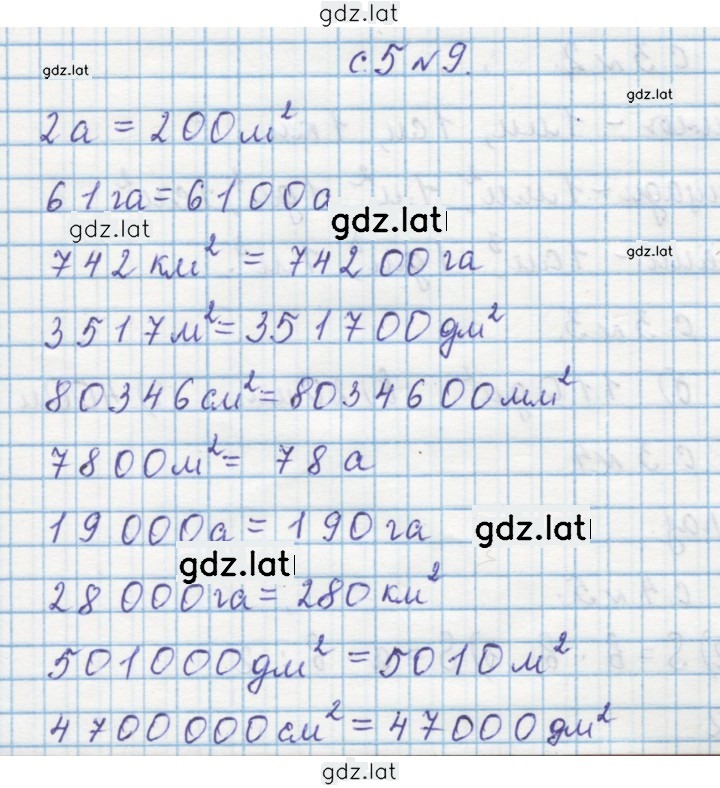 gdz.lat
с.5 №9.
gdz.lat
gdz.lat
2а = 200м²
61га = 6100а
gdz.lat
gdz.lat
742км² = 74200га
gdz.lat
3517м² = 351700дм²
80346см² = 8034600мм²
7800м² = 78а
19000а = 190га
gdz.lat
gdz.lat
28000га = 280км²
501000дм² = 5010м²
4700000см² = 47000дм²
gdz.lat